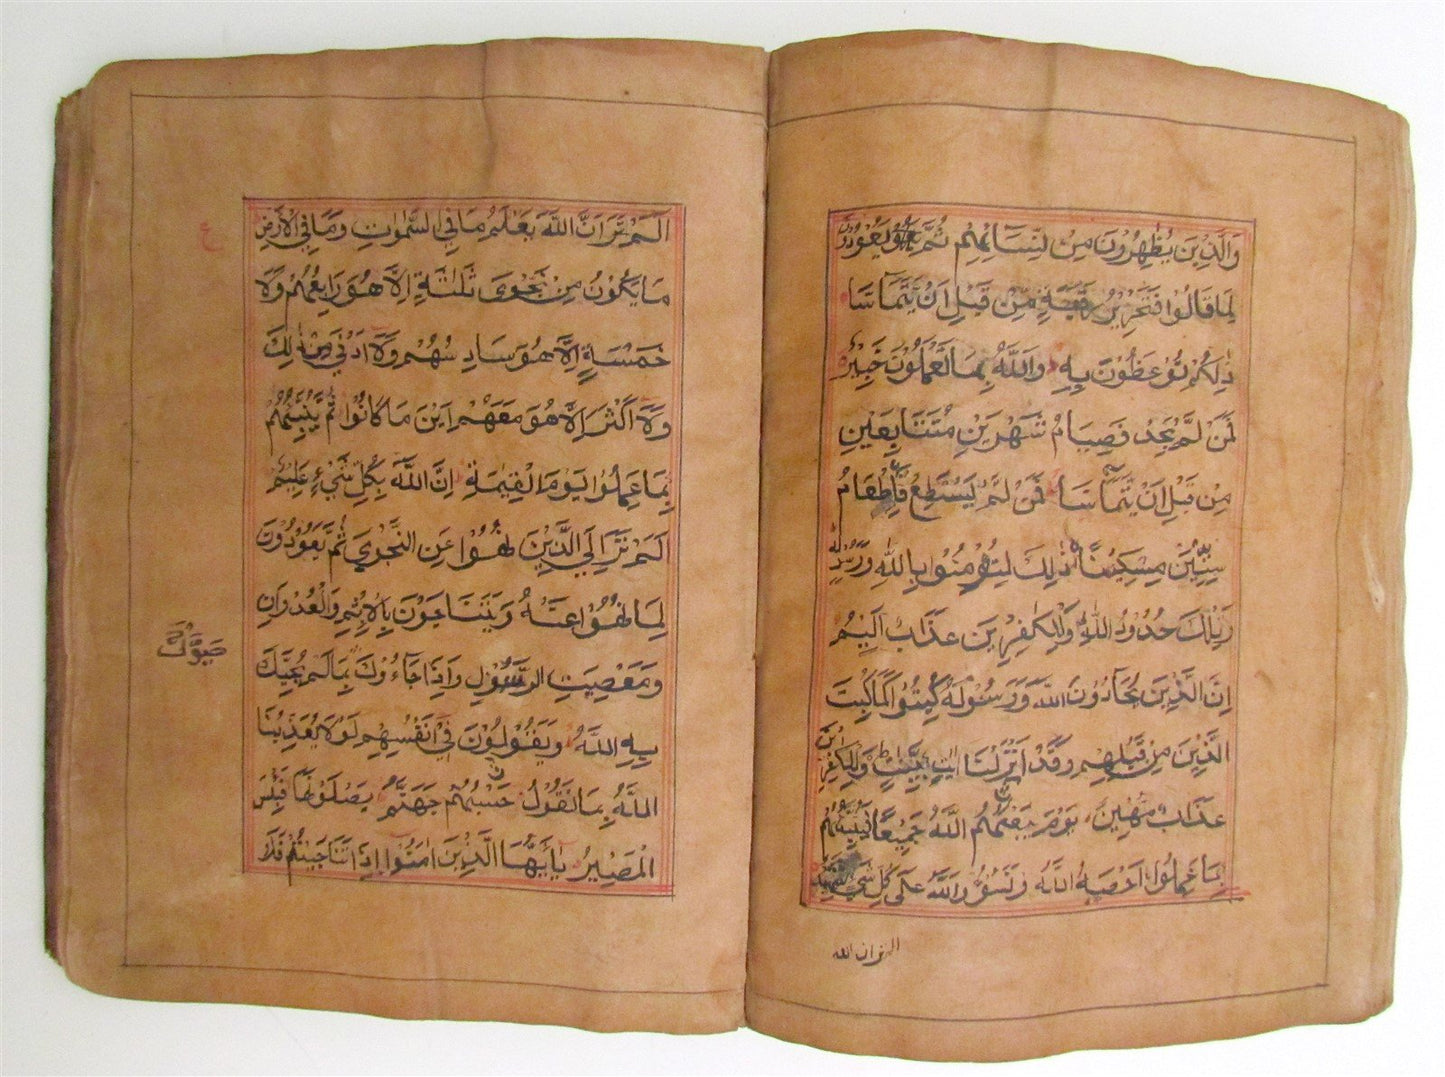 وَالَّذِيْنَ يُظٰهِرُوْنَ مِنْ نِّسَآئِهِمْ ثُمَّ يَعُوْدُوْنَ
لِمَا قَالُوْا فَتَحْرِيْرُ رَقَبَةٍ مِّنْ قَبْلِ اَنْ يَّتَمَآسَّا
ذٰلِكُمْ تُوْعَظُوْنَ بِهٖ وَاللّٰهُ بِمَا تَعْمَلُوْنَ خَبِيْرٌ
فَمَنْ لَّمْ يَجِدْ فَصِيَامُ شَهْرَيْنِ مُتَتَابِعَيْنِ
مِنْ قَبْلِ اَنْ يَّتَمَآسَّا فَمَنْ لَّمْ يَسْتَطِعْ فَاِطْعَامُ
سِتِّيْنَ مِسْكِيْنًا ذٰلِكَ لِتُؤْمِنُوْا بِاللّٰهِ وَرَسُوْلِهٖ
وَتِلْكَ حُدُوْدُ اللّٰهِ وَلِلْكٰفِرِيْنَ عَذَابٌ اَلِيْمٌ
اِنَّ الَّذِيْنَ يُحَآدُّوْنَ اللّٰهَ وَرَسُوْلَهٗ كُبِتُوْا كَمَا كُبِتَ
الَّذِيْنَ مِنْ قَبْلِهِمْ وَقَدْ اَنْزَلْنَا اٰيٰتٍ بَيِّنٰتٍ وَلِلْكٰفِرِيْنَ
عَذَابٌ مُّهِيْنٌ يَوْمَ يَبْعَثُهُمُ اللّٰهُ جَمِيْعًا فَيُنَبِّئُهُمْ
بِمَا عَمِلُوْا اَحْصٰىهُ اللّٰهُ وَنَسُوْهُ وَاللّٰهُ عَلٰى كُلِّ شَيْءٍ شَهِيْدٌ
الم تر ان الله
اَلَمْ تَرَ اَنَّ اللّٰهَ يَعْلَمُ مَا فِي السَّمٰوٰتِ وَمَا فِي الْاَرْضِ
ع
مَا يَكُوْنُ مِنْ نَّجْوٰى ثَلٰثَةٍ اِلَّا هُوَ رَابِعُهُمْ وَلَا
خَمْسَةٍ اِلَّا هُوَ سَادِسُهُمْ وَلَا اَدْنٰى مِنْ ذٰلِكَ
وَلَا اَكْثَرَ اِلَّا هُوَ مَعَهُمْ اَيْنَ مَا كَانُوْا ثُمَّ يُنَبِّئُهُمْ
بِمَا عَمِلُوْا يَوْمَ الْقِيٰمَةِ اِنَّ اللّٰهَ بِكُلِّ شَيْءٍ عَلِيْمٌ
اَلَمْ تَرَ اِلَى الَّذِيْنَ نُهُوْا عَنِ النَّجْوٰى ثُمَّ يَعُوْدُوْنَ
لِمَا نُهُوْا عَنْهُ وَيَتَنَاجَوْنَ بِالْاِثْمِ وَالْعُدْوَانِ
وَمَعْصِيَتِ الرَّسُوْلِ وَاِذَا جَآءُوْكَ حَيَّوْكَ بِمَا لَمْ يُحَيِّكَ
بِهِ اللّٰهُ وَيَقُوْلُوْنَ فِيْ اَنْفُسِهِمْ لَوْلَا يُعَذِّبُنَا
اللّٰهُ بِمَا نَقُوْلُ حَسْبُهُمْ جَهَنَّمُ يَصْلَوْنَهَا فَبِئْسَ
الْمَصِيْرُ يٰاَيُّهَا الَّذِيْنَ اٰمَنُوْا اِذَا تَنَاجَيْتُمْ فَلَا